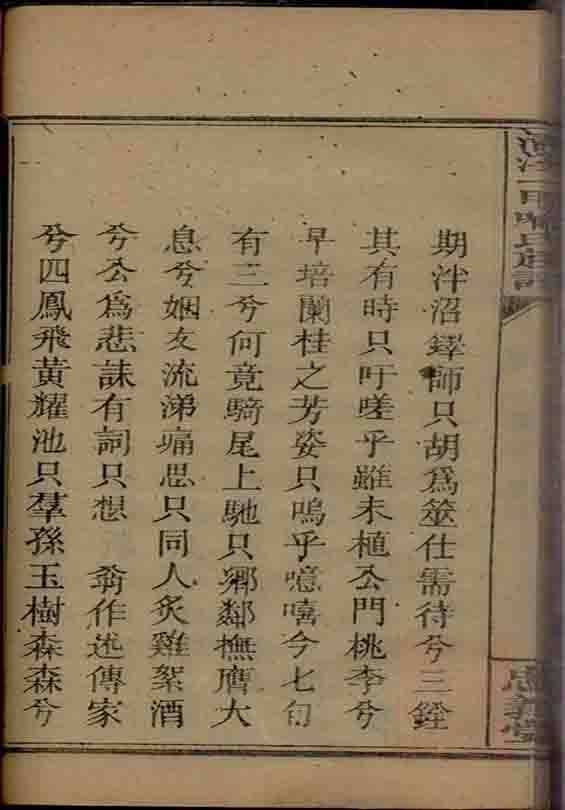 期泮沼鐸師只胡為筮仕需待兮三銓
其有時只吁嗟乎雖未植公門桃李兮
早培蘭桂之芳姿只嗚乎噫嘻今七旬
有三兮何竟騎尾上馳只鄉鄰撫膺大
息兮姻友流涕痛思只同人炙雞絮酒
兮公為悲誄有詞只想 翁作述傳家
兮四鳳飛黃耀池只羣孫玉樹森森兮
忠義堂